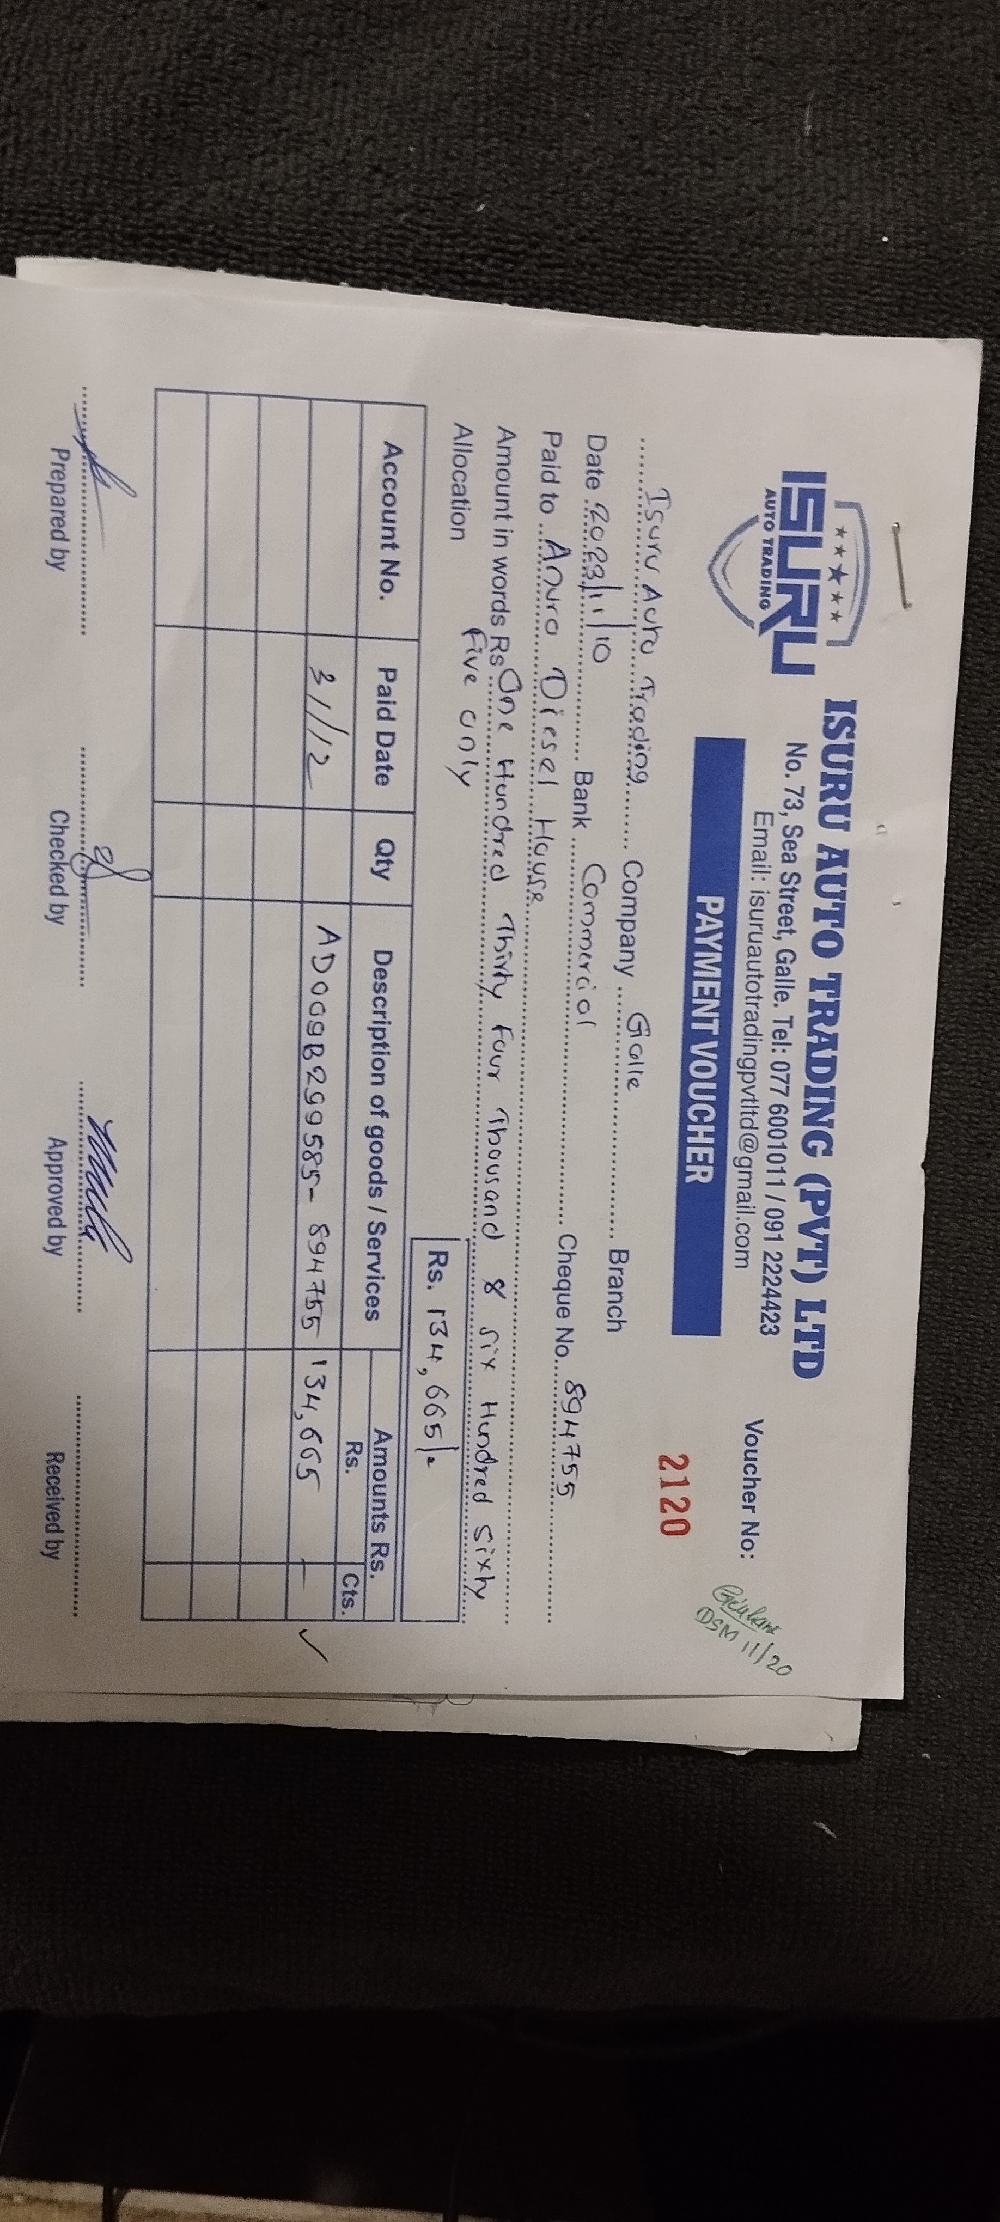 ISURU
AUTO TRADING
ISURU AUTO TRADING (PVT) LTD
No. 73, Sea Street, Galle. Tel: 077 6001011 / 091 2224423
Email: isuruautotradingpvtltd@gmail.com
PAYMENT VOUCHER
Voucher No:
2120
DSM 11/20
Isuru Auto Trading Company Galle Branch
Date 2023/11/10 Bank Commercial Cheque No. 894755
Paid to Anura Diesel House
Amount in words Rs One Hundred Thirty Four Thousand & Six Hundred Sixty
Five only
Allocation
Rs. 134,665/-
Account No. Paid Date Qty Description of goods / Services Amounts Rs.
Rs. Cts.
31/12 AD009B299585- 894755 134,665 -
Prepared by Checked by Approved by Received by